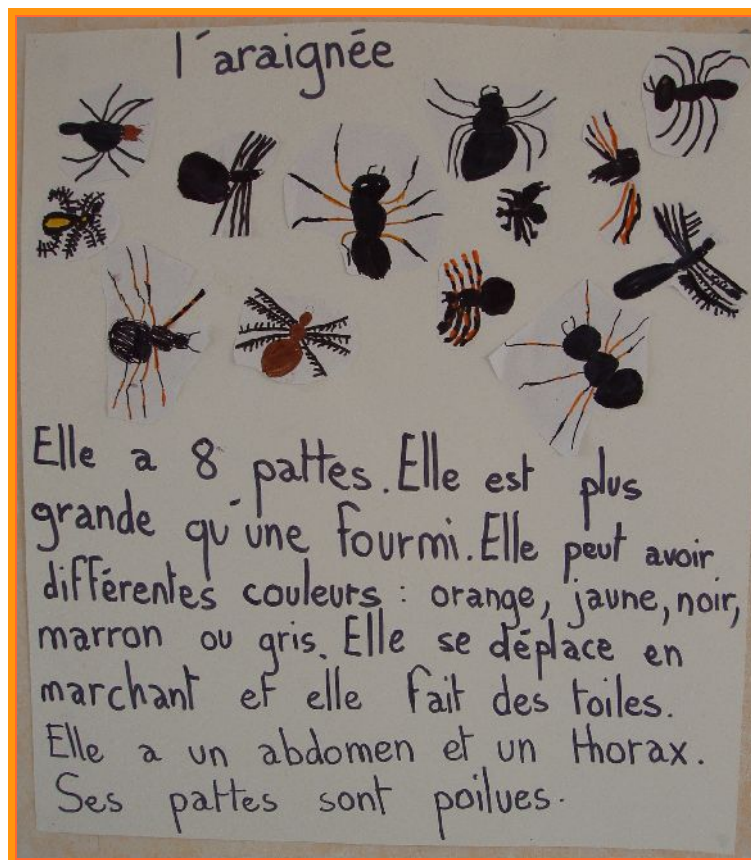 l'araignée
Elle a 8 pattes. Elle est plus
grande qu'une fourmi. Elle peut avoir
différentes couleurs : orange, jaune, noir,
marron ou gris. Elle se déplace en
marchant et elle fait des toiles.
Elle a un abdomen et un thorax.
Ses pattes sont poilues.